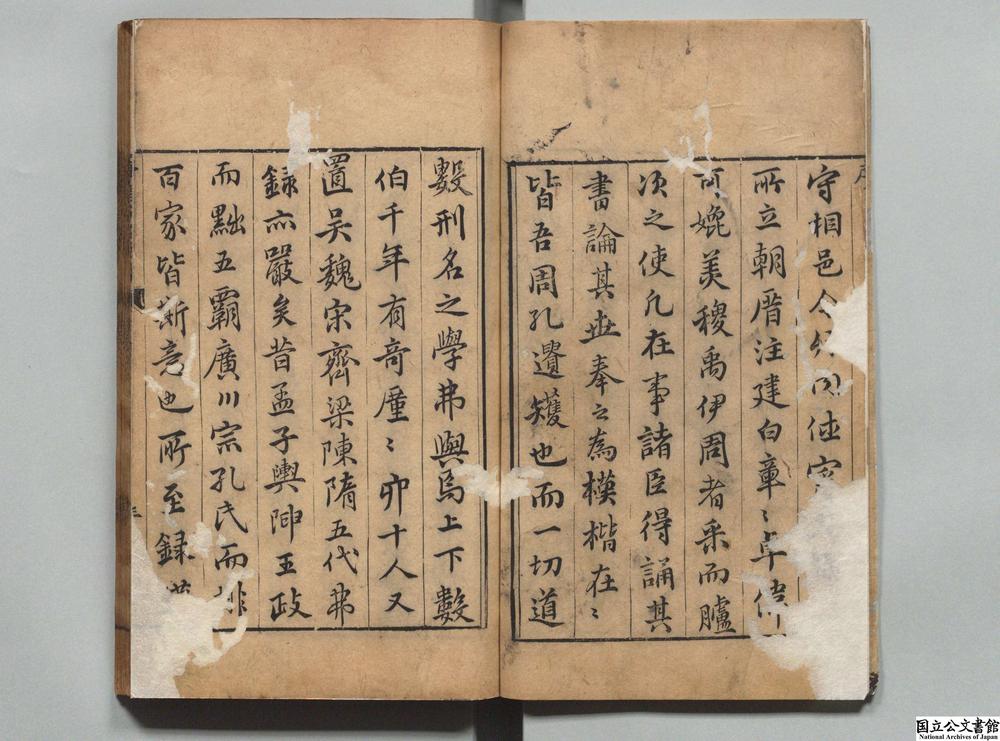 守相邑令
所立朝厝注建白章〻卓偉
可媲美稷禹伊周者采而臚
次之使凡在事諸臣得誦其
書論其世奉之為模楷在〻
皆吾周孔遺矱也而一切道
數刑名之學弗與焉上下數
伯千年有奇廑〻卯十人又
置吳魏宋齊梁陳隋五代弗
錄亦嚴矣昔孟子輿伸王政
而黜五霸廣川宗孔氏而排
百家皆斯意也所至錄
国立公文書館
National Archives of Japan